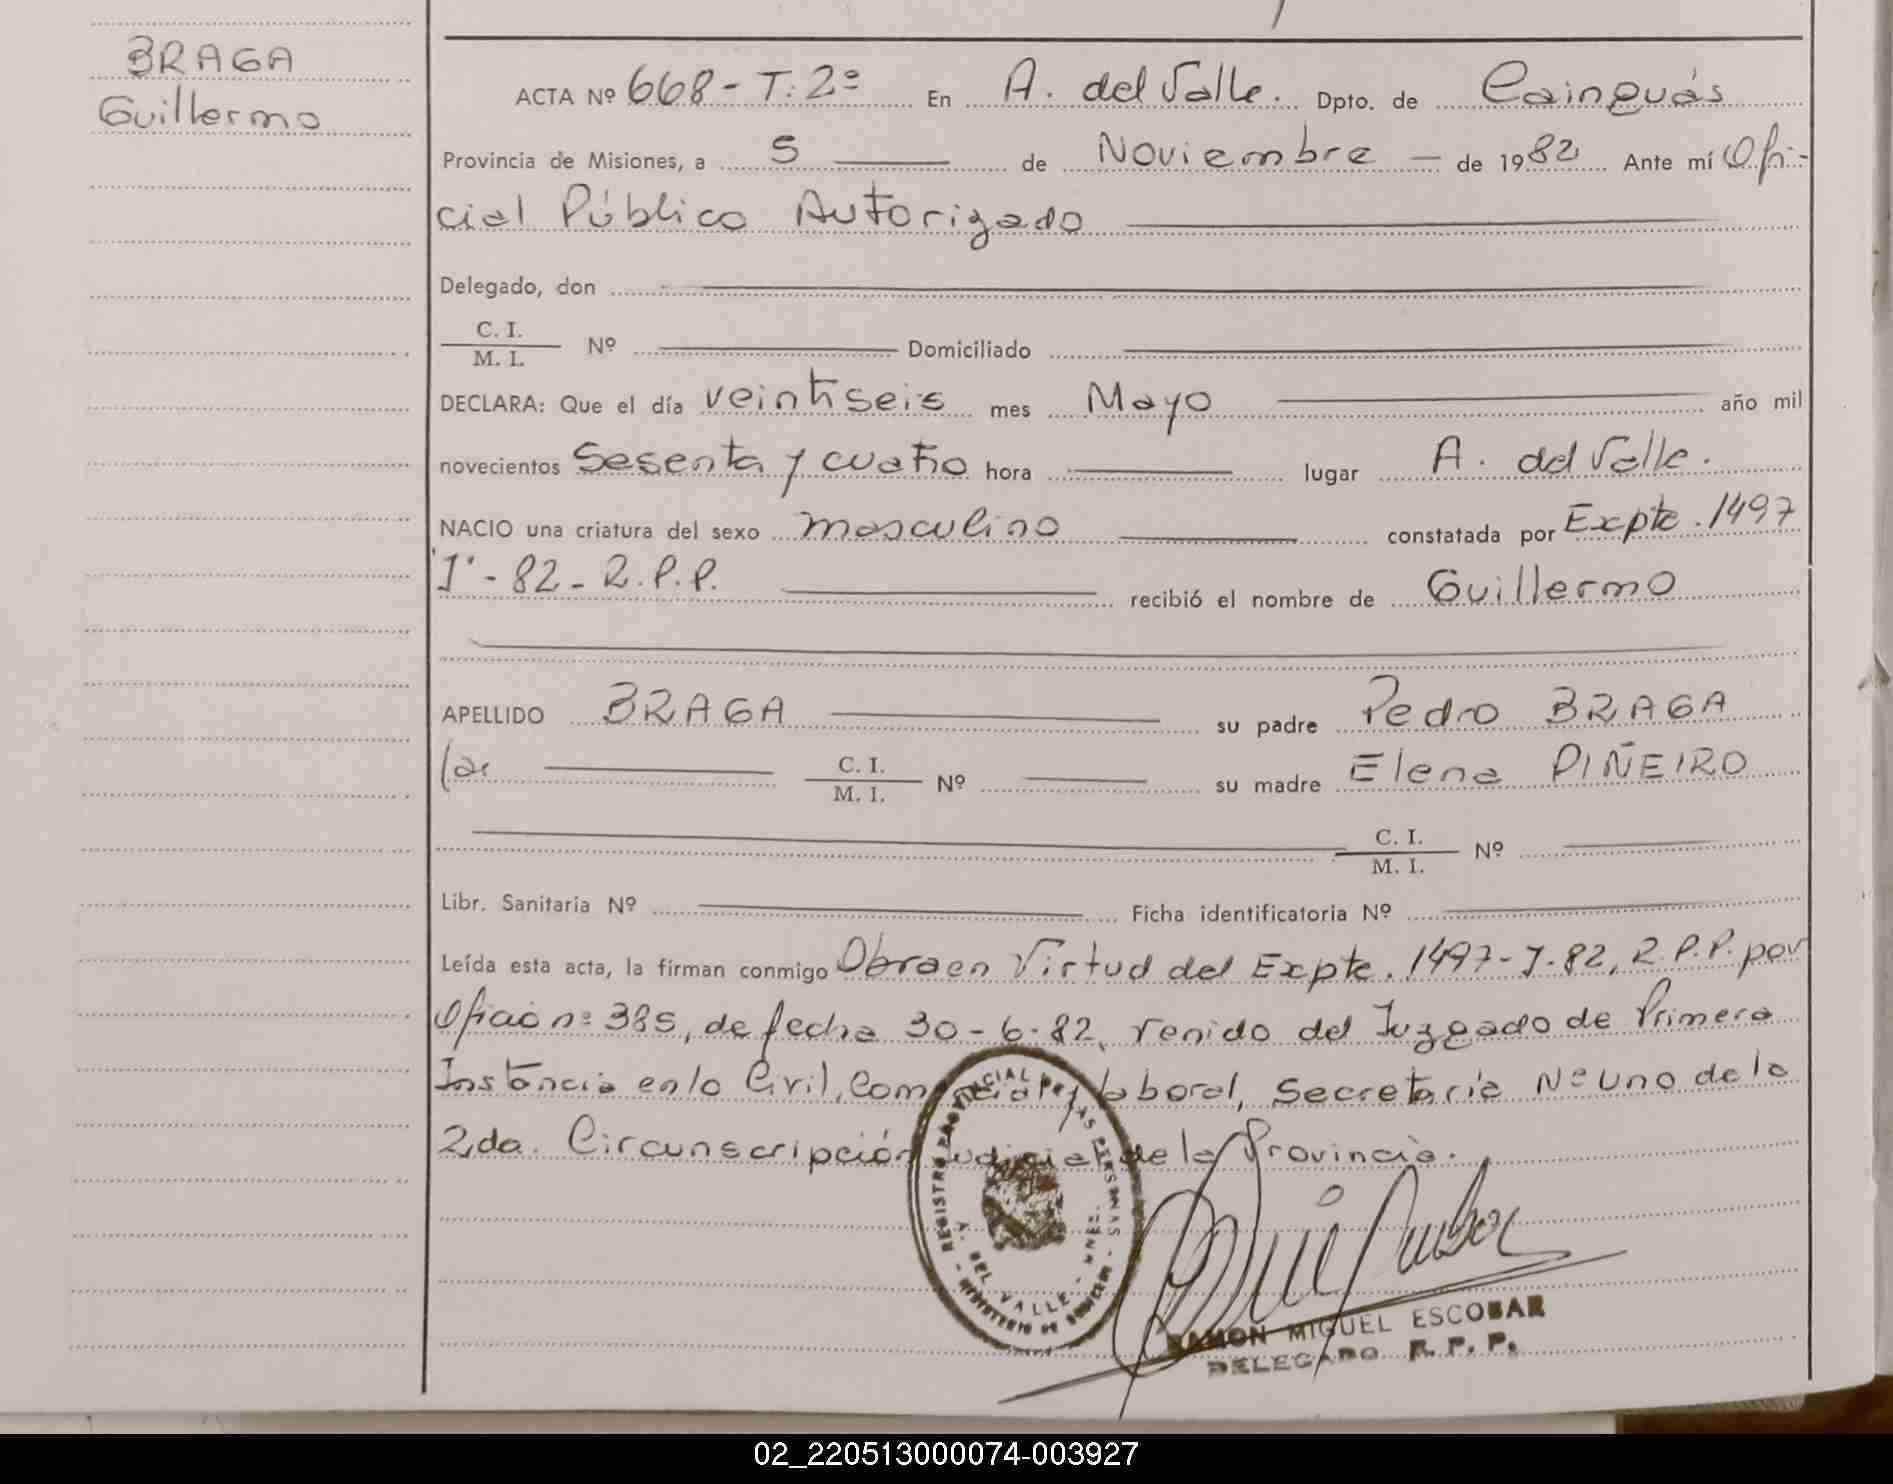 BRAGA
Guillermo
ACTA Nº 668 - T: 2º En A. del Valle. Dpto. de Cainguás
Provincia de Misiones, a 5 de Noviembre de 1982 Ante mí Ofi-
cial Público Autorizado
Delegado, don
C. I.
M. I. Nº Domiciliado
DECLARA: Que el día veintiseis mes Mayo año mil
novecientos Sesenta y cuatro hora lugar A. del Valle.
NACIO una criatura del sexo masculino constatada por Expte. 1497
"J" - 82 - R.P.P. recibió el nombre de Guillermo
APELLIDO BRAGA su padre Pedro BRAGA
C. I.
M. I. Nº su madre Elena PIÑEIRO
C. I.
M. I. Nº
Libr. Sanitaria Nº Ficha identificatoria Nº
Leída esta acta, la firman conmigo Obra en Virtud del Expte. 1497 - J - 82, R.P.P. por
Oficio nº 385, de fecha 30 - 6 - 82, venido del Juzgado de Primera
Instancia en lo Civil, Comercial y laboral, Secretaria Nº Uno de la
2da. Circunscripción Judicial de la Provincia.
REGISTRO PROVINCIAL DE LAS PERSONAS
A. DEL VALLE - MNES.
RAMON MIGUEL ESCOBAR
DELEGADO R. P. P.
02_220513000074-003927